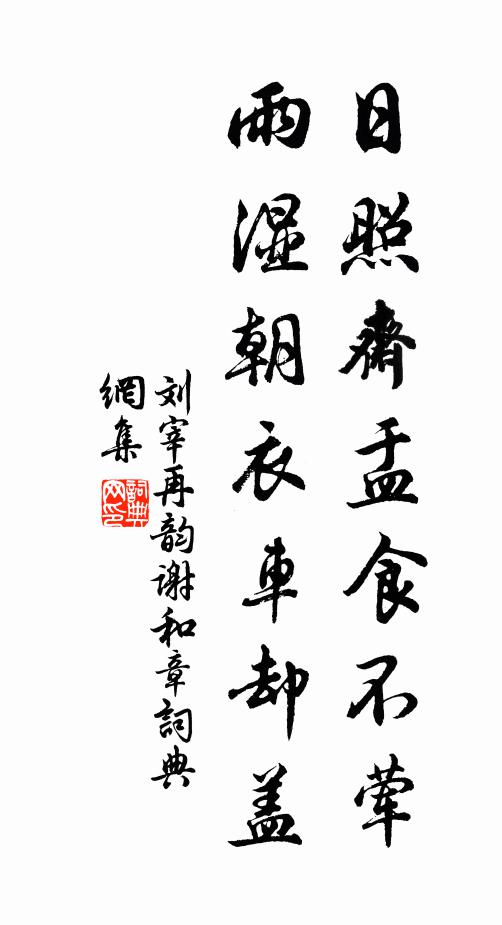 日照齋盂食不葷
雨湿朝衣車却盖
刘宰再韵谢和章詞典
網集
詞典
网印